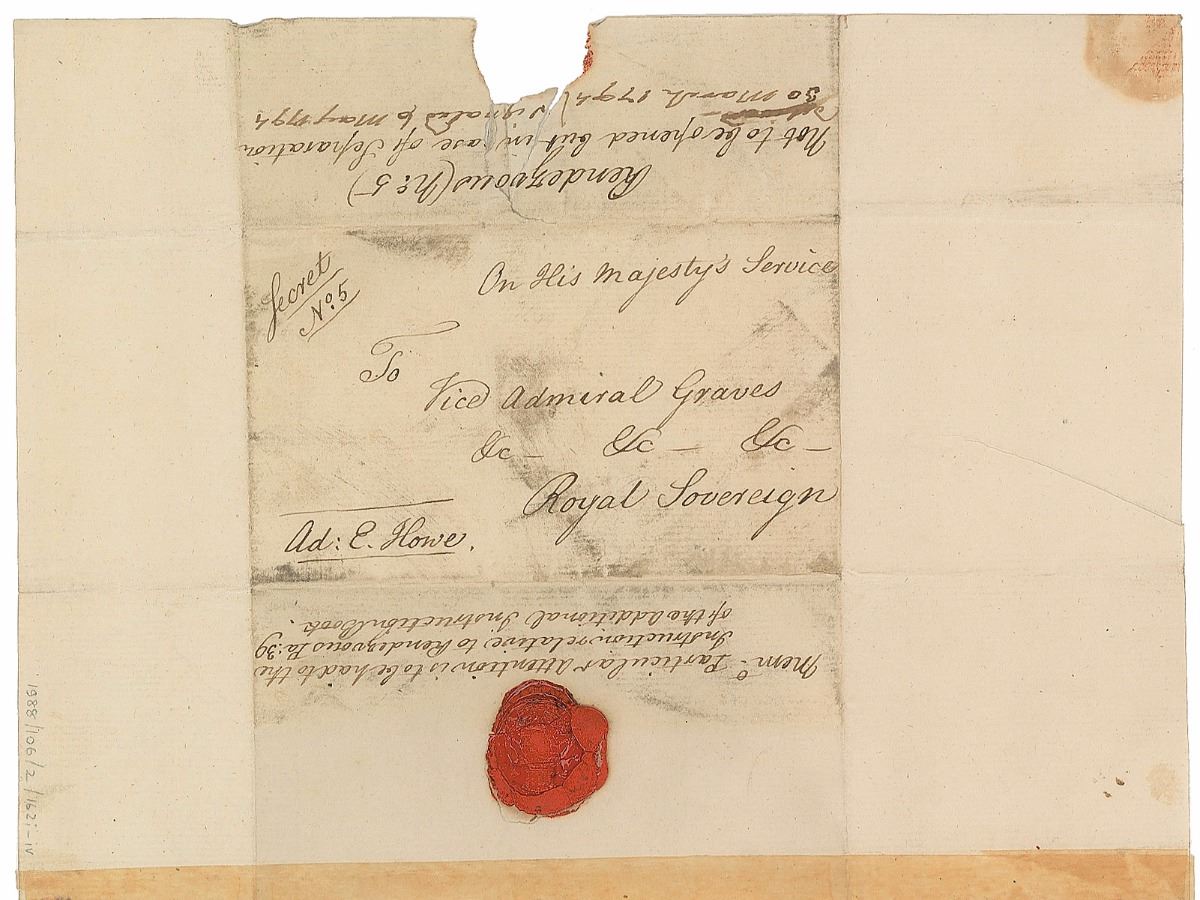 Rendezvous (No: 5)
Not to be opened but in case of Separation
30 March 1794 Signaled 6 May 1794
Secret
No. 5
On His Majesty's Service
To
Vice Admiral Graves
&c - &c - &c -
Royal Sovereign
Ad: E. Howe.
Memo: Particular attention is to be had to the
Instruction, relative to Rendezvous Pa: 39
of the Additional Instruction Book.
1988/106/2/1621-IV